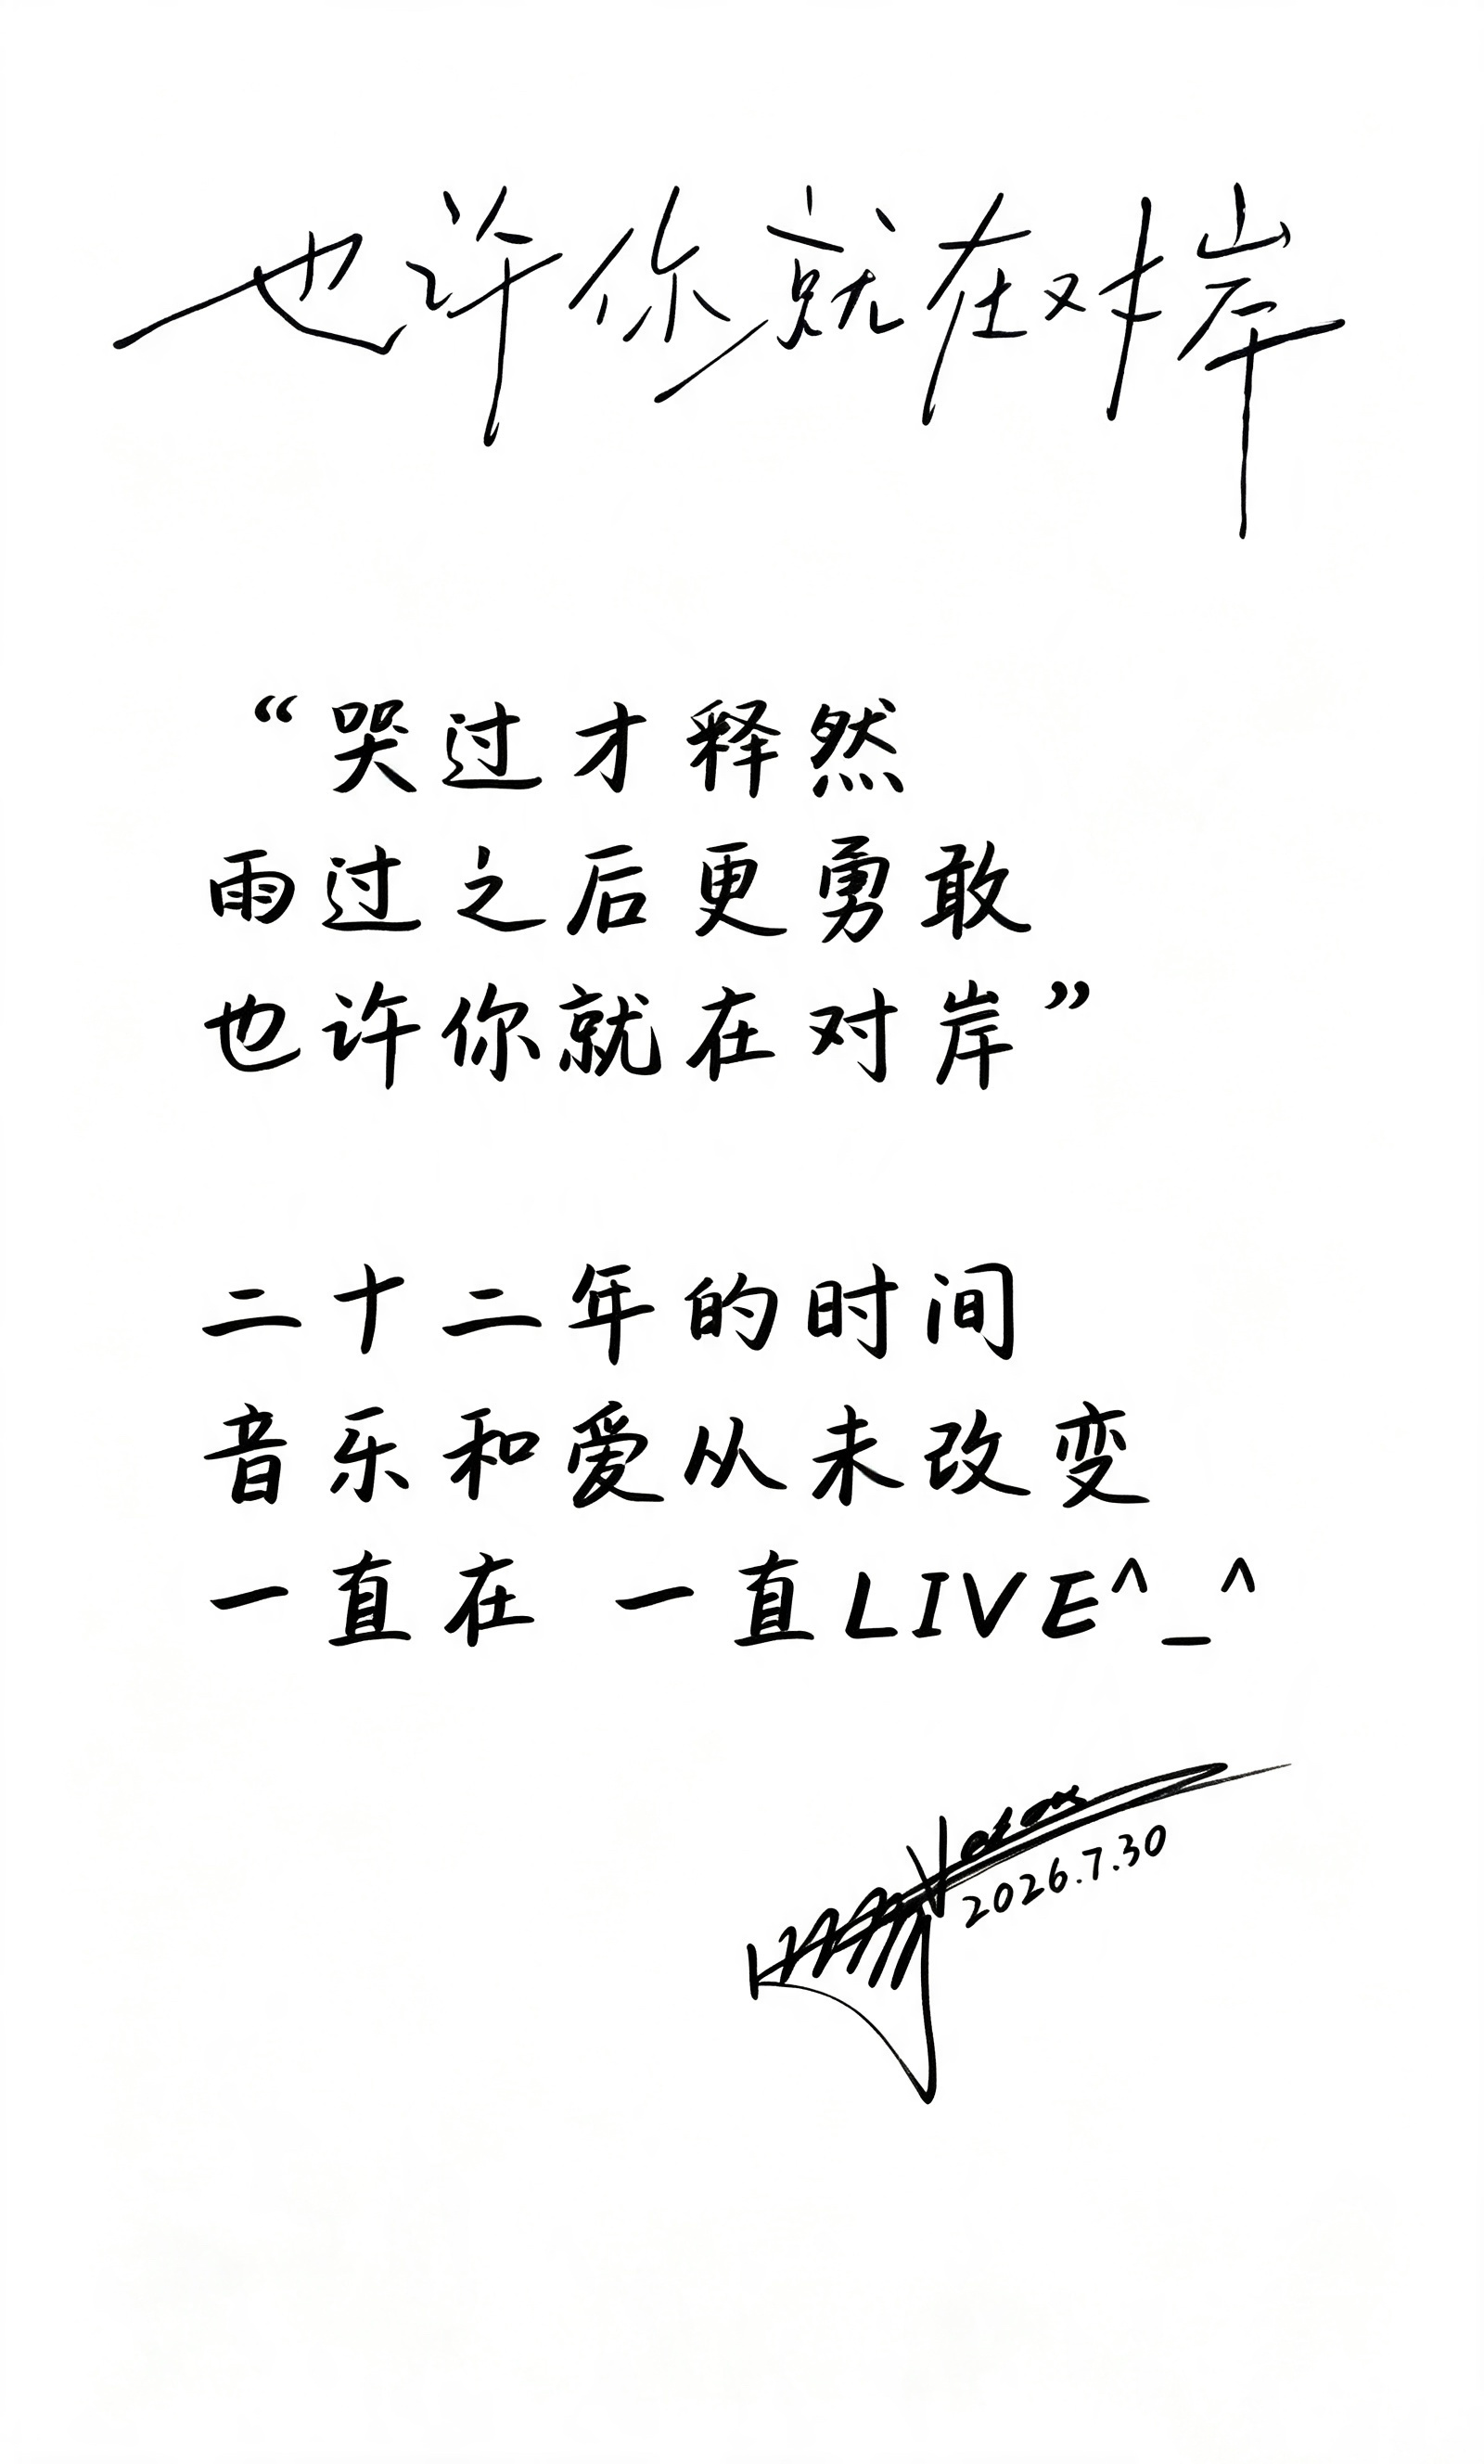 也许你就在对岸
“哭过才释然
雨过之后更勇敢
也许你就在对岸”
二十二年的时间
音乐和爱从未改变
一直在 一直LIVE^_^
2026.7.30